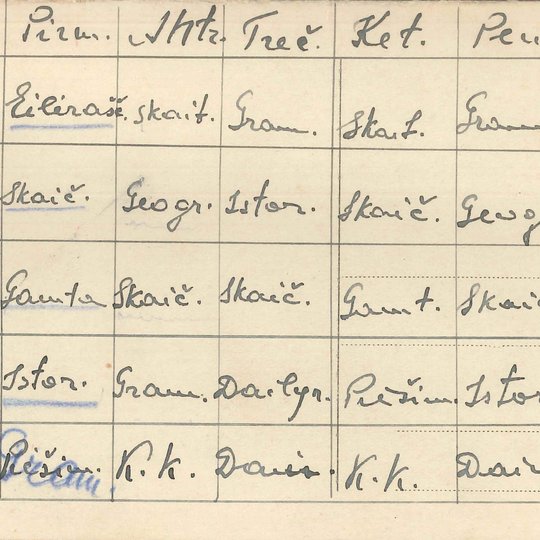 Pirm. Antr. Treč. Ket. Pen
Eilėrašč. skait. Gram. Skait. Gram
Skaič. Geogr. Istor. Skaič. Geog
Gamta Skaič. Skaič. Gamt. Skai
Istor. Gram. Dailyr. Piešim. Istor
Piešim. K. K. Dain. K. K. Dain
Gram.